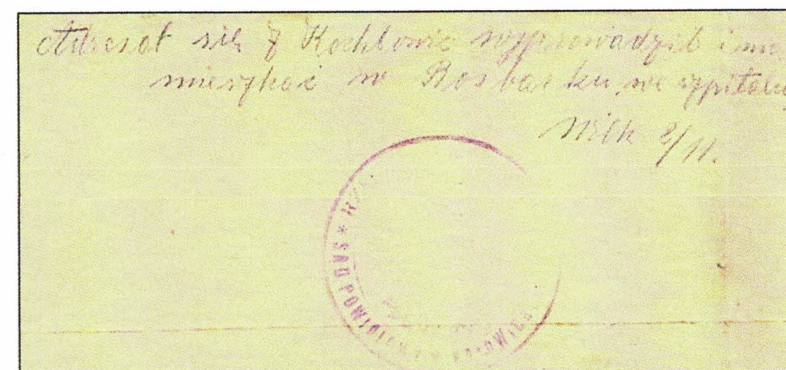 Adresat się z Kochlowic wyprowadził i ma
mieszkać w Rosbarku, we szpitalu
Wilk 8/11.
* SĄD POWIATOWY W KATOWICA